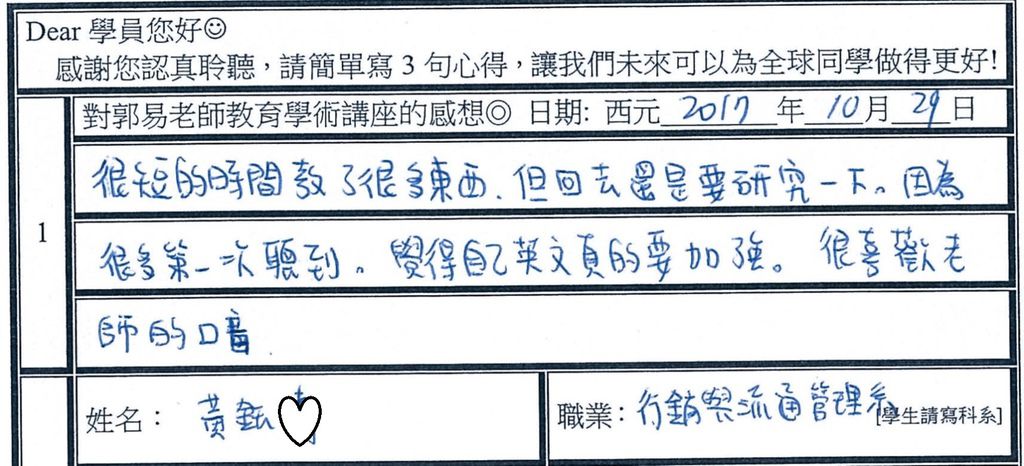 Dear 學員您好☺
感謝您認真聆聽，請簡單寫 3 句心得，讓我們未來可以為全球同學做得更好!
對郭易老師教育學術講座的感想◎ 日期: 西元 2017 年 10 月 29 日
1
很短的時間教了很多東西、但回去還是要研究一下。因為
很多第一次聽到。覺得自己英文真的要加強。很喜歡老
師的口音
姓名： 黃鈺
職業： 行銷與流通管理系 [學生請寫科系]